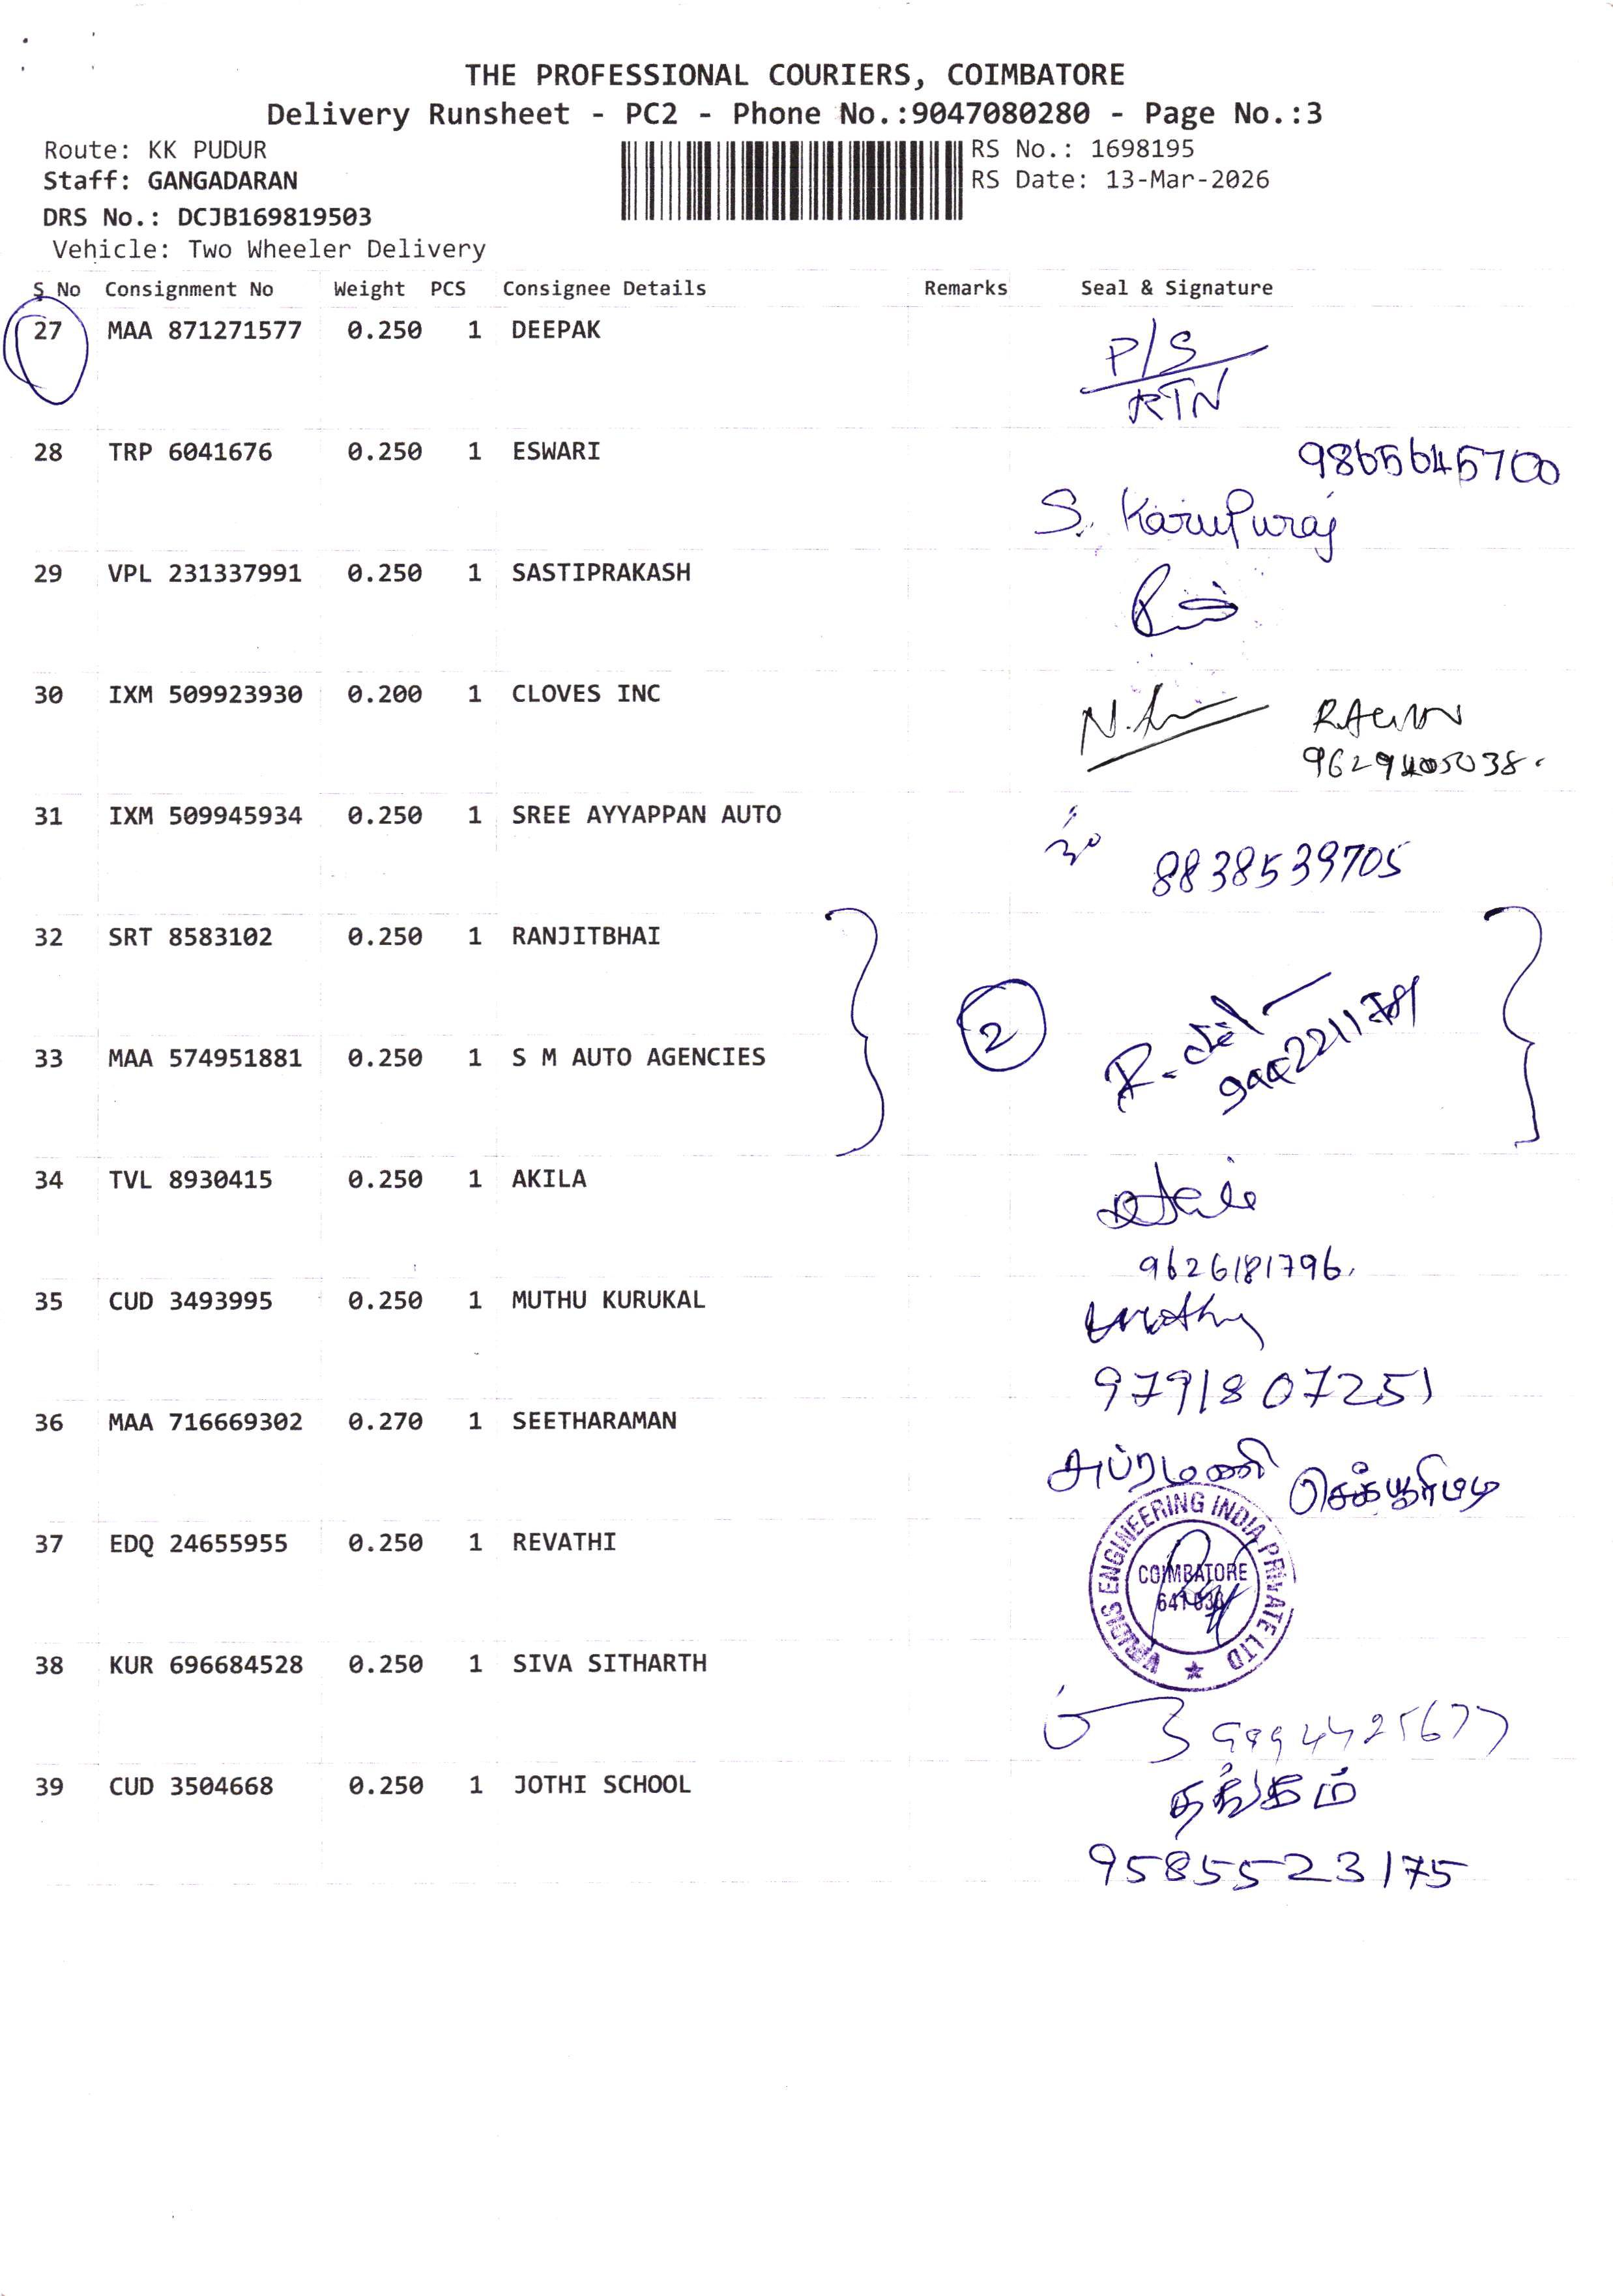 THE PROFESSIONAL COURIERS, COIMBATORE
Delivery Runsheet - PC2 - Phone No.:9047080280 - Page No.:3
Route: KK PUDUR
RS No.: 1698195
Staff: GANGADARAN
RS Date: 13-Mar-2026
DRS No.: DCJB169819503
Vehicle: Two Wheeler Delivery
S No Consignment No Weight PCS Consignee Details Remarks Seal & Signature
27 MAA 871271577 0.250 1 DEEPAK
P/S
RTN
28 TRP 6041676 0.250 1 ESWARI
9865645700
S. Karupuraj
29 VPL 231337991 0.250 1 SASTIPRAKASH
30 IXM 509923930 0.200 1 CLOVES INC
31 IXM 509945934 0.250 1 SREE AYYAPPAN AUTO
8838539705
32 SRT 8583102 0.250 1 RANJITBHAI
2
33 MAA 574951881 0.250 1 S M AUTO AGENCIES
34 TVL 8930415 0.250 1 AKILA
9626181796.
35 CUD 3493995 0.250 1 MUTHU KURUKAL
9791807251
36 MAA 716669302 0.270 1 SEETHARAMAN
37 EDQ 24655955 0.250 1 REVATHI
ENGINEERING INDIA PRIVATE LTD
COIMBATORE
38 KUR 696684528 0.250 1 SIVA SITHARTH
39 CUD 3504668 0.250 1 JOTHI SCHOOL
தங்கம்
9585523175